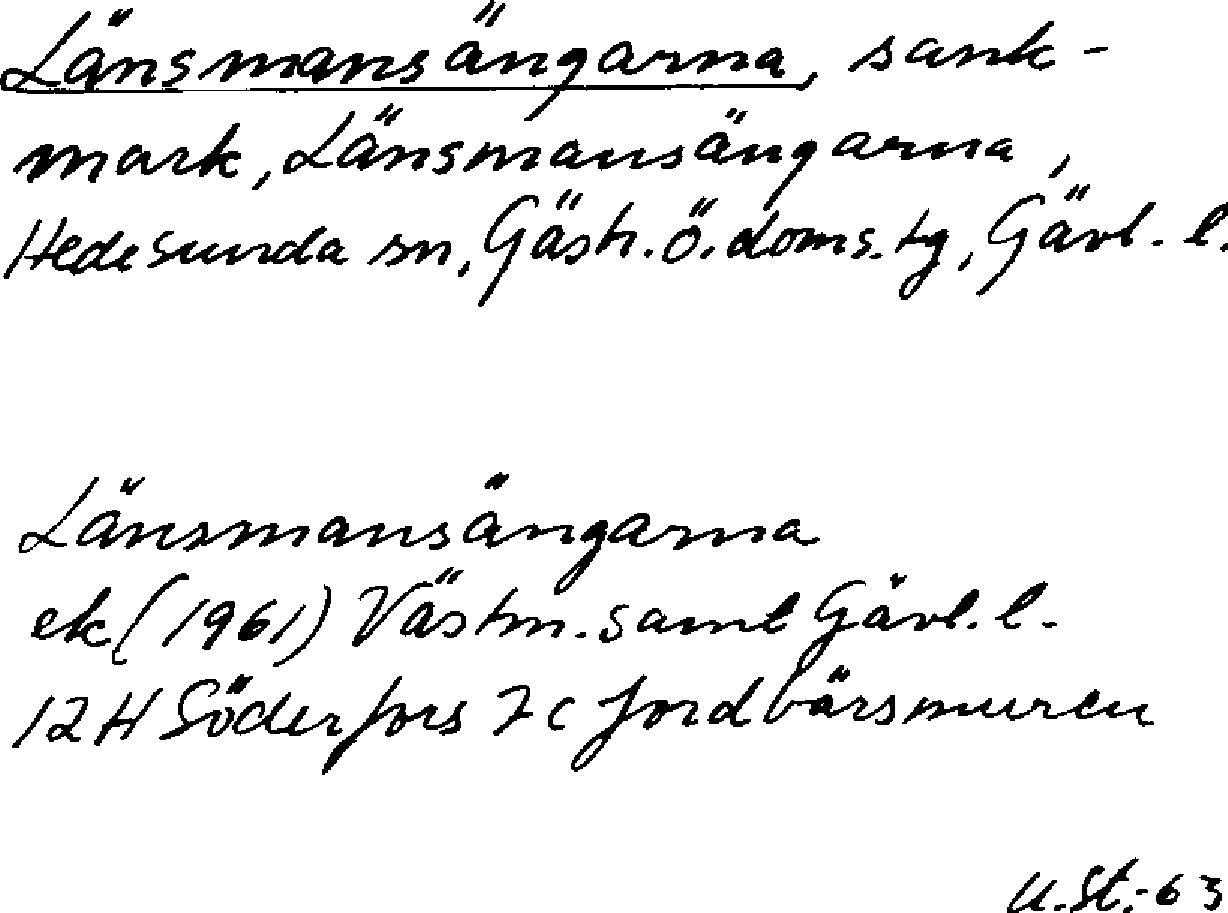 Länsmansängarna, sank-
mark, Länsmansängarna,
Hedesunda sn, Gästr. ö. doms. tg, Gävl. l.
Länsmansängarna
ek (1961) Västm. samt Gävl. l.
12 H Söderfors 7c Jordbärsmuren
U. St. -63